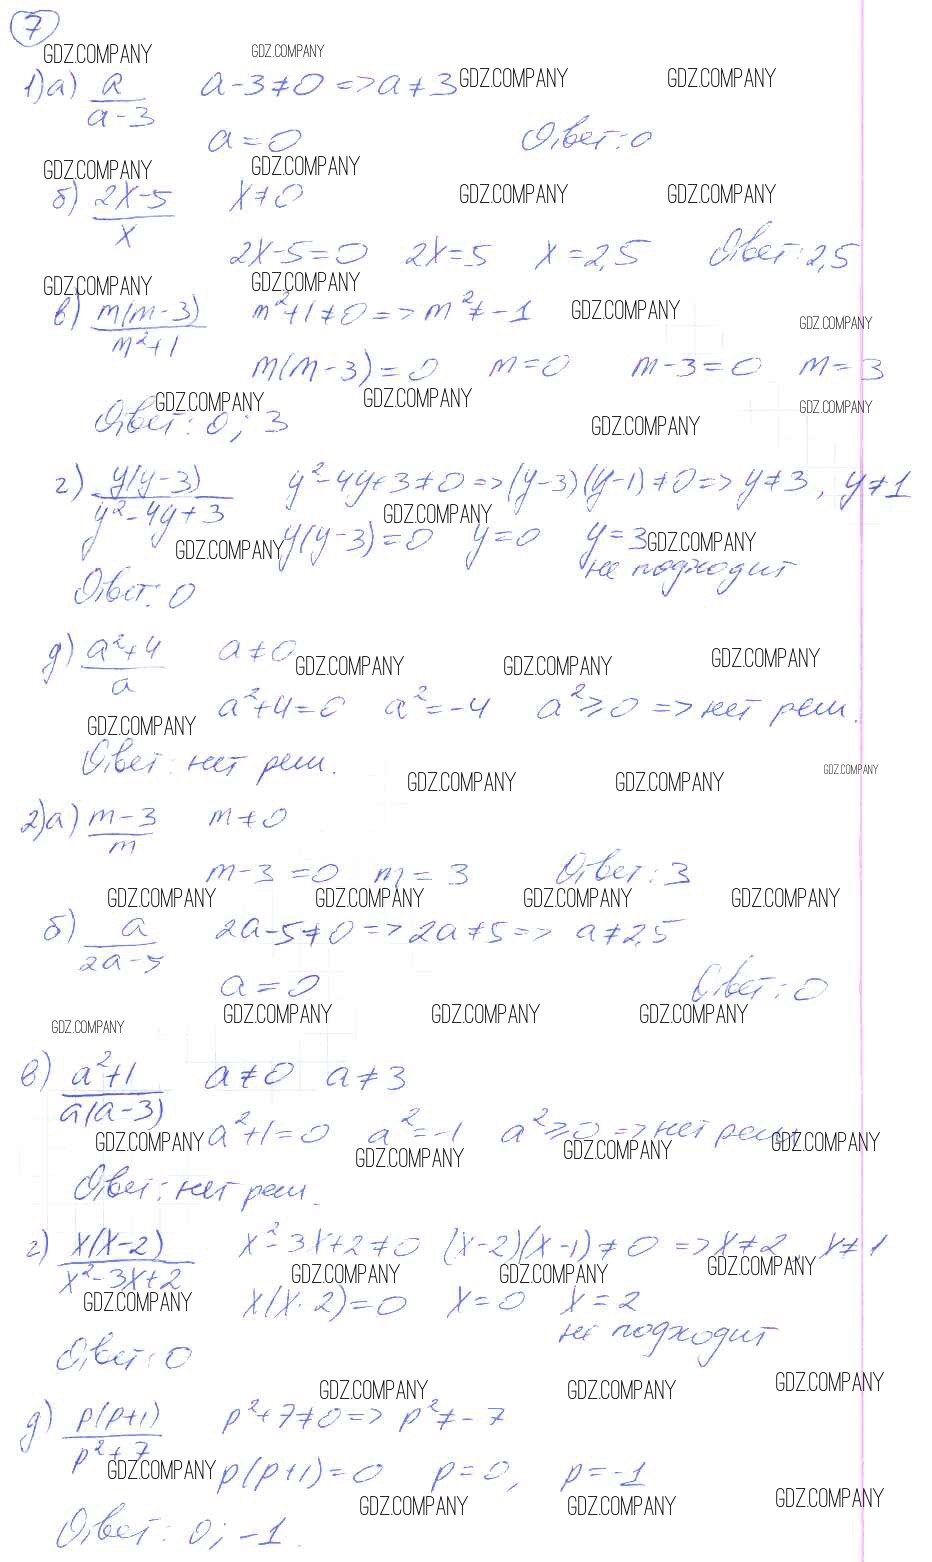 7
GDZ.COMPANY GDZ.COMPANY
1)а) a/(a-3) a-3≠0 => a≠3 GDZ.COMPANY GDZ.COMPANY
a=0 Ответ: 0
GDZ.COMPANY GDZ.COMPANY GDZ.COMPANY GDZ.COMPANY
б) (2x-5)/x x≠0
2x-5=0 2x=5 x=2,5 Ответ: 2,5
GDZ.COMPANY GDZ.COMPANY
в) m(m-3)/(m²+1) m²+1≠0 => m²≠-1 GDZ.COMPANY GDZ.COMPANY
m(m-3)=0 m=0 m-3=0 m=3
GDZ.COMPANY GDZ.COMPANY GDZ.COMPANY GDZ.COMPANY
Ответ: 0; 3
г) y(y-3)/(y²-4y+3) y²-4y+3≠0 => (y-3)(y-1)≠0 => y≠3, y≠1
GDZ.COMPANY
GDZ.COMPANY y(y-3)=0 y=0 y=3 GDZ.COMPANY
не подходит
Ответ: 0
д) (a²+4)/a a≠0 GDZ.COMPANY GDZ.COMPANY GDZ.COMPANY
a²+4=0 a²=-4 a²≥0 => нет реш.
GDZ.COMPANY
Ответ: нет реш.
GDZ.COMPANY GDZ.COMPANY GDZ.COMPANY
2)а) (m-3)/m m≠0
m-3=0 m=3 Ответ: 3
GDZ.COMPANY GDZ.COMPANY GDZ.COMPANY GDZ.COMPANY
б) a/(2a-5) 2a-5≠0 => 2a≠5 => a≠2,5
a=0 Ответ: 0
GDZ.COMPANY GDZ.COMPANY GDZ.COMPANY GDZ.COMPANY
в) (a²+1)/(a(a-3)) a≠0 a≠3
a²+1=0 a²=-1 a²≥0 => нет реш
GDZ.COMPANY GDZ.COMPANY GDZ.COMPANY GDZ.COMPANY
Ответ: нет реш.
г) x(x-2)/(x²-3x+2) x²-3x+2≠0 (x-2)(x-1)≠0 => x≠2, x≠1
GDZ.COMPANY GDZ.COMPANY GDZ.COMPANY
GDZ.COMPANY x(x-2)=0 x=0 x=2
не подходит
Ответ: 0
GDZ.COMPANY GDZ.COMPANY GDZ.COMPANY
д) p(p+1)/(p²+7) p²+7≠0 => p²≠-7
GDZ.COMPANY p(p+1)=0 p=0, p=-1
GDZ.COMPANY GDZ.COMPANY GDZ.COMPANY
Ответ: 0; -1.